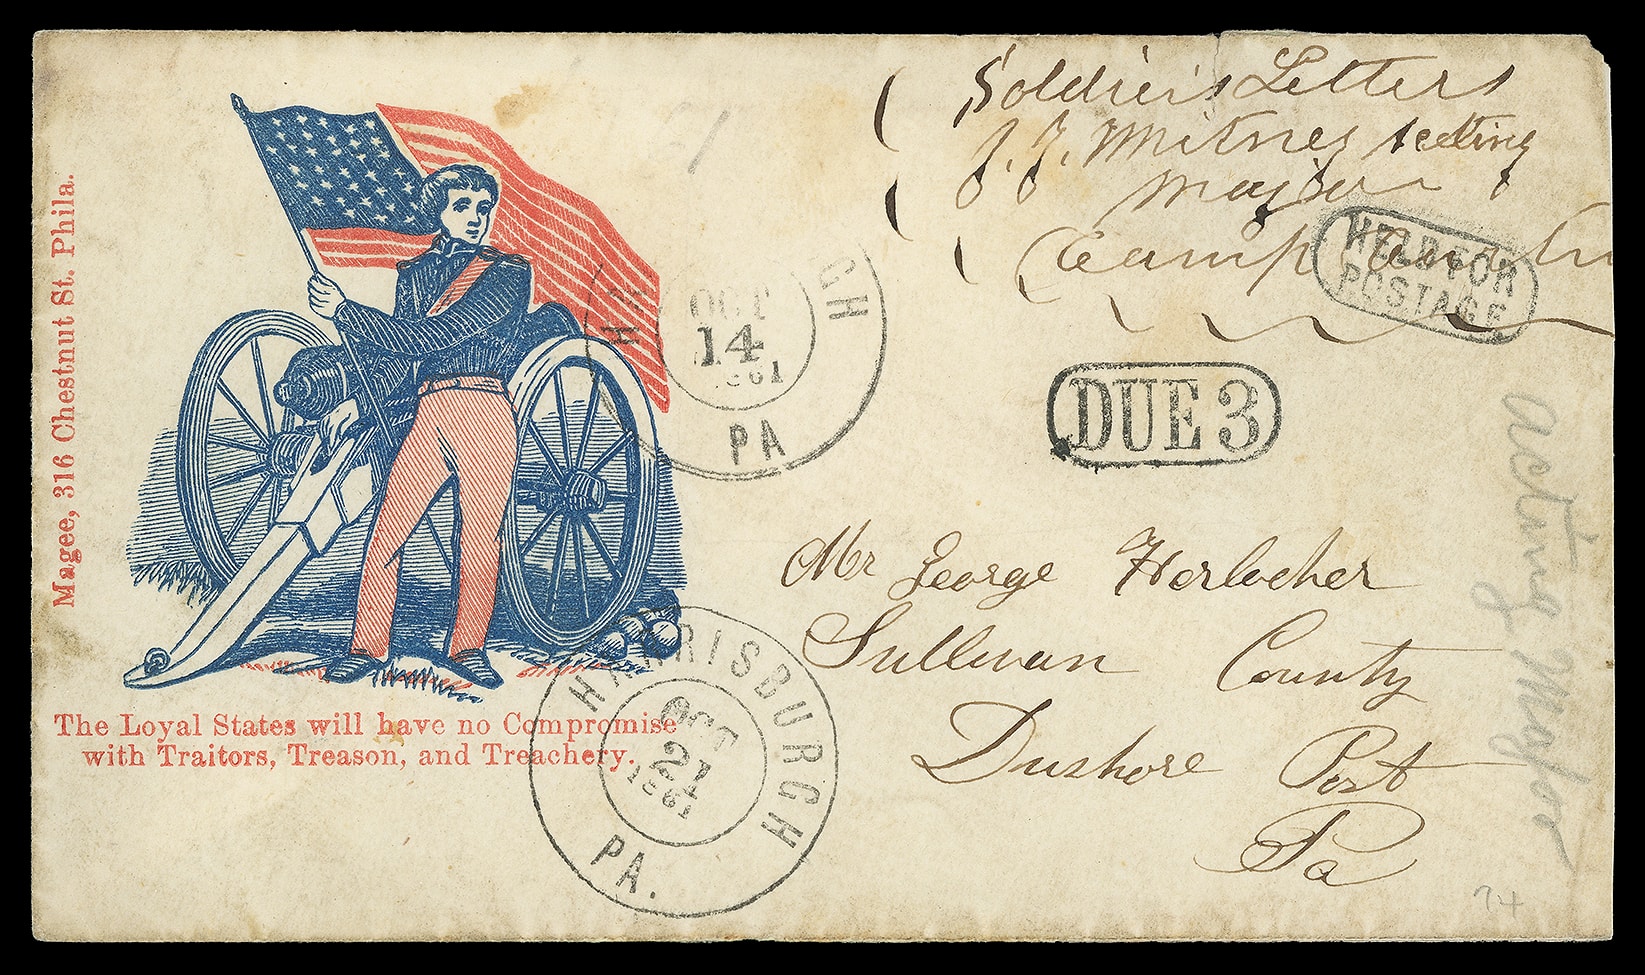 Magee, 316 Chestnut St. Phila.
The Loyal States will have no Compromise
with Traitors, Treason, and Treachery.
Soldier's Letters
J. J. Mitner acting
Major
Camp
HELD FOR
POSTAGE
DUE 3
HA GH
OCT
14
1861
PA
Mr George Horlocher
Sullivan County
Dushore Post
Pa
HARRISBURGH
OCT
21
1861
PA.
acting Major
74